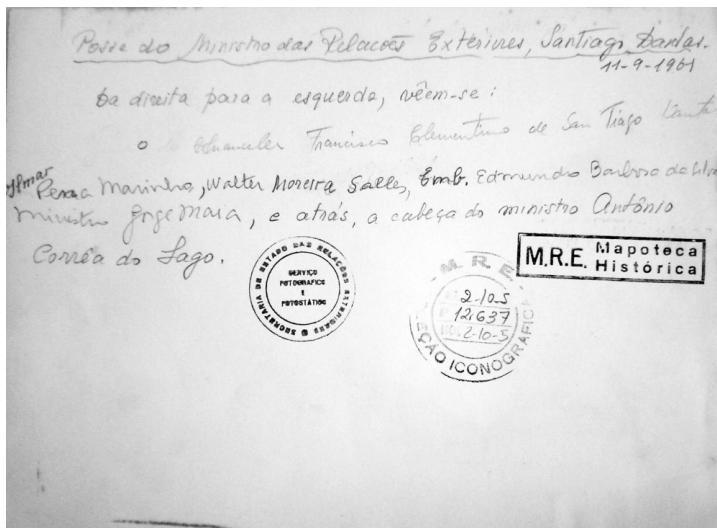 Posse do Ministro das Relacões Exteriores, Santiago Dantas.
11-9-1961
Da direita para a esquerda, vêem-se:
o Chanceler Francisco Clementino de San Tiago Dantas
Ilmar
Penna Marinho, Walter Moreira Salles, Emb. Edmundo Barbosa da Silva
Ministro Jorge Maia, e atrás, a cabeça do ministro Antônio
Corrêa do Lago.
SECRETARIA DE ESTADO DAS RELAÇÕES EXTERIORES
SERVIÇO
FOTOGRAFICO
E
FOTOSTÁTICO
M. R. E.
2-10-5
12.637
2-10-5
ICONOGRAFIC
M.R.E. Mapoteca
Histórica